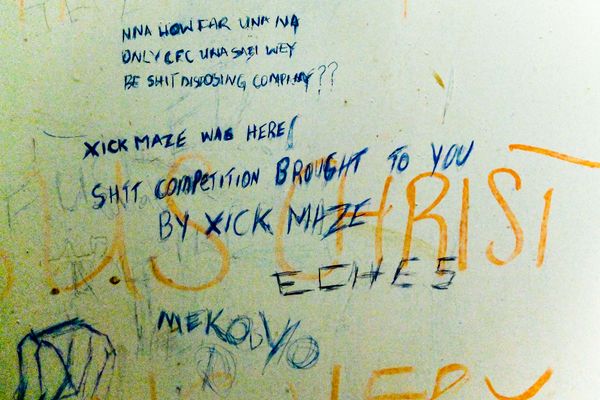 NNA HOW FAR UNA NA
ONLY CFC UNA SABI WEY
BE SHIT DISPOSING COMPANY??
XICK MAZE WAS HERE!
SHIT COMPETITION BROUGHT TO YOU
BY XICK MAZE
U.S CHRIST
ECHES
MEKOYO
VERY